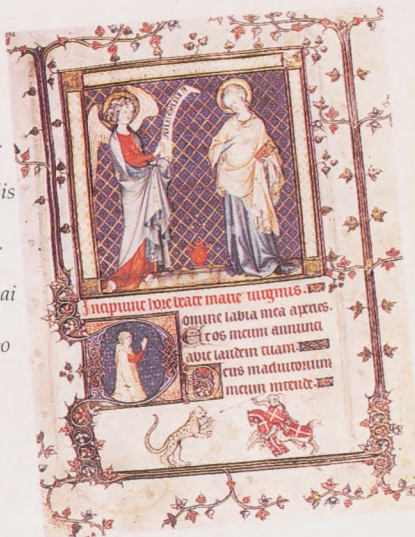 is
ai
o
Incipiunt hore beate marie uirginis.
Domine labia mea aperies.
Et os meum annunci
abit laudem tuam
Deus in adiutorium
meum intende.